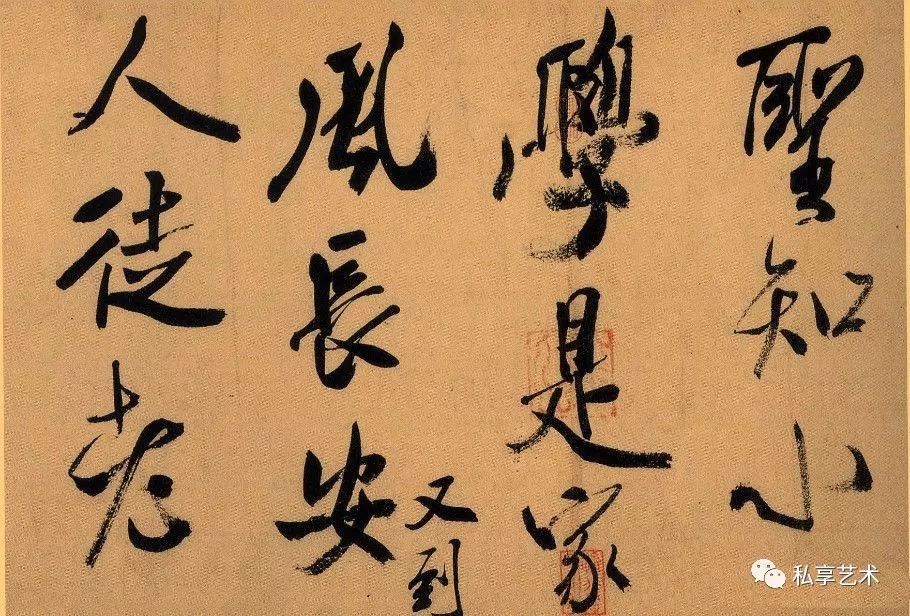 聖知小
學是家
風長安
又到
人徒老
私享艺术